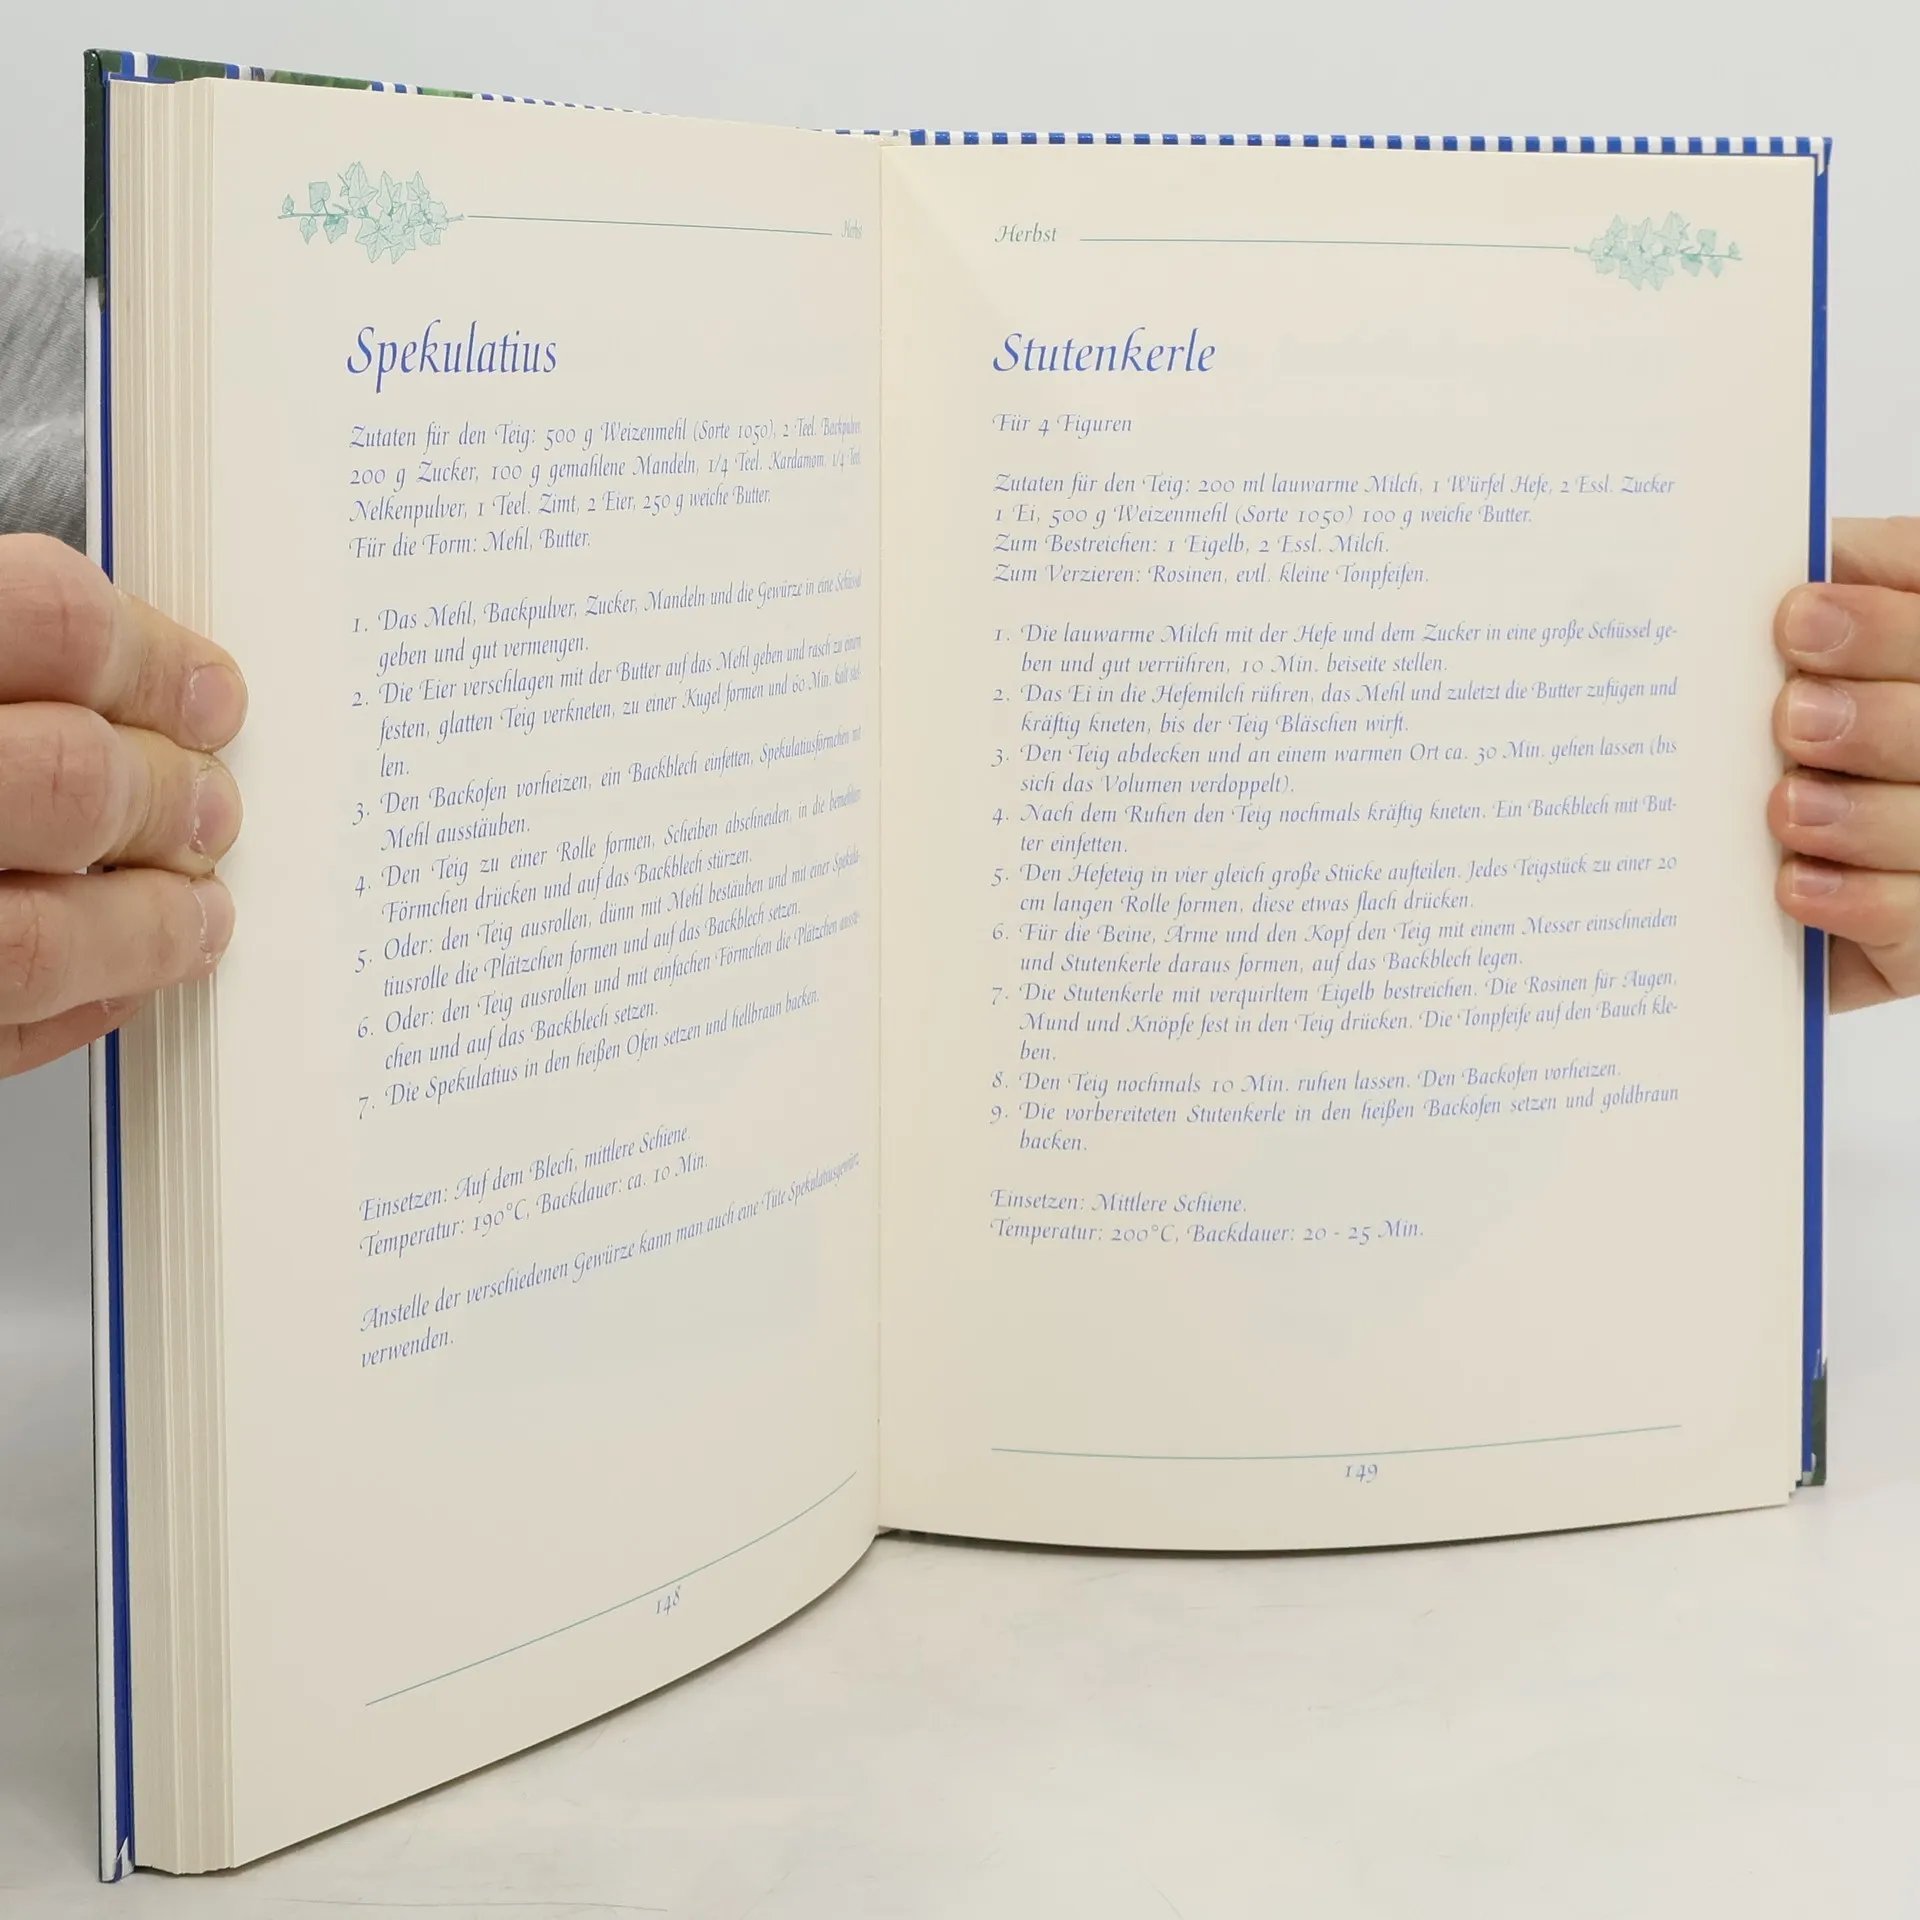 Herbst
Spekulatius
Zutaten für den Teig: 500 g Weizenmehl (Sorte 1050), 2 Teel. Backpulver,
200 g Zucker, 100 g gemahlene Mandeln, 1/4 Teel. Kardamom, 1/4 Teel.
Nelkenpulver, 1 Teel. Zimt, 2 Eier, 250 g weiche Butter.
Für die Form: Mehl, Butter.
1. Das Mehl, Backpulver, Zucker, Mandeln und die Gewürze in eine Schüssel
geben und gut vermengen.
2. Die Eier verschlagen mit der Butter auf das Mehl geben und rasch zu einem
festen, glatten Teig verkneten, zu einer Kugel formen und 60 Min. kalt stel-
len.
3. Den Backofen vorheizen, ein Backblech einfetten, Spekulatiusförmchen mit
Mehl ausstäuben.
4. Den Teig zu einer Rolle formen, Scheiben abschneiden, in die bemehlten
Förmchen drücken und auf das Backblech stürzen.
5. Oder: den Teig ausrollen, dünn mit Mehl bestäuben und mit einer Spekula-
tiusrolle die Plätzchen formen und auf das Backblech setzen.
6. Oder: den Teig ausrollen und mit einfachen Förmchen die Plätzchen ausste-
chen und auf das Backblech setzen.
7. Die Spekulatius in den heißen Ofen setzen und hellbraun backen.
Einsetzen: Auf dem Blech, mittlere Schiene.
Temperatur: 190°C, Backdauer: ca. 10 Min.
Anstelle der verschiedenen Gewürze kann man auch eine Tüte Spekulatiusgewürz
verwenden.
148
Herbst
Stutenkerle
Für 4 Figuren
Zutaten für den Teig: 200 ml lauwarme Milch, 1 Würfel Hefe, 2 Essl. Zucker
1 Ei, 500 g Weizenmehl (Sorte 1050) 100 g weiche Butter.
Zum Bestreichen: 1 Eigelb, 2 Essl. Milch.
Zum Verzieren: Rosinen, evtl. kleine Tonpfeifen.
1. Die lauwarme Milch mit der Hefe und dem Zucker in eine große Schüssel ge-
ben und gut verrühren, 10 Min. beiseite stellen.
2. Das Ei in die Hefemilch rühren, das Mehl und zuletzt die Butter zufügen und
kräftig kneten, bis der Teig Bläschen wirft.
3. Den Teig abdecken und an einem warmen Ort ca. 30 Min. gehen lassen (bis
sich das Volumen verdoppelt).
4. Nach dem Ruhen den Teig nochmals kräftig kneten. Ein Backblech mit But-
ter einfetten.
5. Den Hefeteig in vier gleich große Stücke aufteilen. Jedes Teigstück zu einer 20
cm langen Rolle formen, diese etwas flach drücken.
6. Für die Beine, Arme und den Kopf den Teig mit einem Messer einschneiden
und Stutenkerle daraus formen, auf das Backblech legen.
7. Die Stutenkerle mit verquirltem Eigelb bestreichen. Die Rosinen für Augen,
Mund und Knöpfe fest in den Teig drücken. Die Tonpfeife auf den Bauch kle-
ben.
8. Den Teig nochmals 10 Min. ruhen lassen. Den Backofen vorheizen.
9. Die vorbereiteten Stutenkerle in den heißen Backofen setzen und goldbraun
backen.
Einsetzen: Mittlere Schiene.
Temperatur: 200°C, Backdauer: 20 - 25 Min.
149